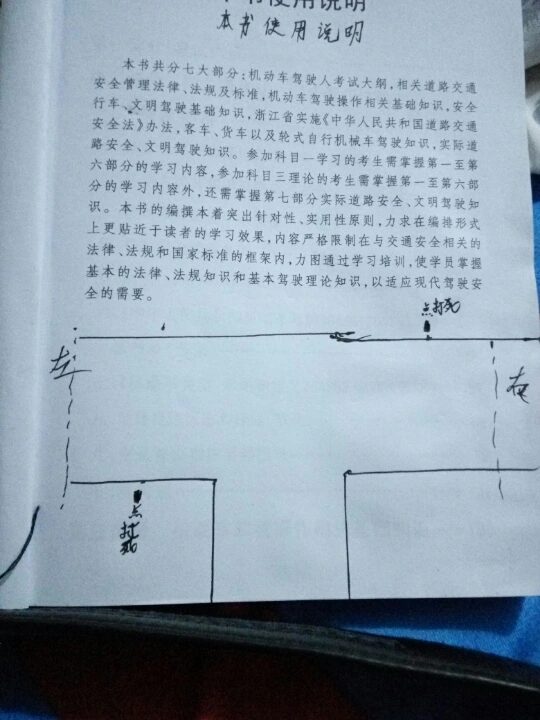 本书使用说明
本书使用说明
本书共分七大部分：机动车驾驶人考试大纲，相关道路交通
安全管理法律、法规及标准，机动车驾驶操作相关基础知识，安全
行车、文明驾驶基础知识，浙江省实施《中华人民共和国道路交通
安全法》办法，客车、货车以及轮式自行机械车驾驶知识，实际道
路安全、文明驾驶知识。参加科目一学习的考生需掌握第一至第
六部分的学习内容，参加科目三理论的考生需掌握第一至第六部
分的学习内容外，还需掌握第七部分实际道路安全、文明驾驶知
识。本书的编撰本着突出针对性、实用性原则，力求在编排形式
上更贴近于读者的学习效果，内容严格限制在与交通安全相关的
法律、法规和国家标准的框架内，力图通过学习培训，使学员掌握
基本的法律、法规知识和基本驾驶理论知识，以适应现代驾驶安
全的需要。
点打死
左
右
点打死